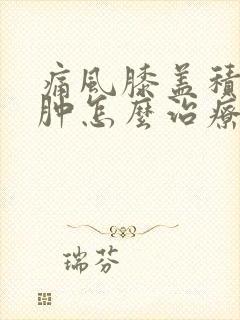 痛風膝盖積
肿怎麼治療
瑞芬